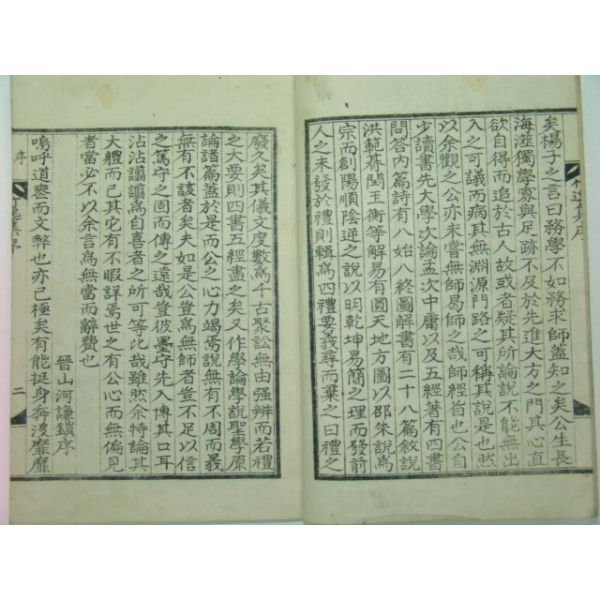 矣楊子之言曰務學不如務求師蓋知之矣公生長
海澨獨學寡與足跡不及於先進大方之門其心直
欲自得而追於古人故或者疑其所論說不能無出
入之可議而病其無淵源門路之可稱其說是也然
以余觀之公亦未嘗無師易師之哉師經旨也公自
少讀書先大學次論孟次中庸以及五經著有四書
問答內篇詩有八始八終圖解書有二十八篇敘說
洪範朞閏王衡等解易有圓天地方圖以邵朱說爲
宗而創陽順陰逆之說以明乾坤易簡之理而發前
人之未發於禮則輯爲四禮要我尋而棄之曰禮之
廢久矣其儀文度數爲千古聚訟無由強辨而若禮
之大要則四書五經盡之矣又作學論學說聖學原
論諸篇蓋於是而公之心力竭焉說無有不周而義
無有不該者矣夫如是公豈爲無師者豈不足以信
之篤守之固而傳之遠哉豈彼墨守先入博其口耳
沾沾讘讘爲自喜者之所可等比哉雖然余特論其
大體而已其它有不暇詳焉世之有公心而無偏見
者當必不以余言爲無當而辭費也
晉山河謙鎭序
嗚呼道喪而文弊也亦已極矣有能挺身奔波靡靡
序
二